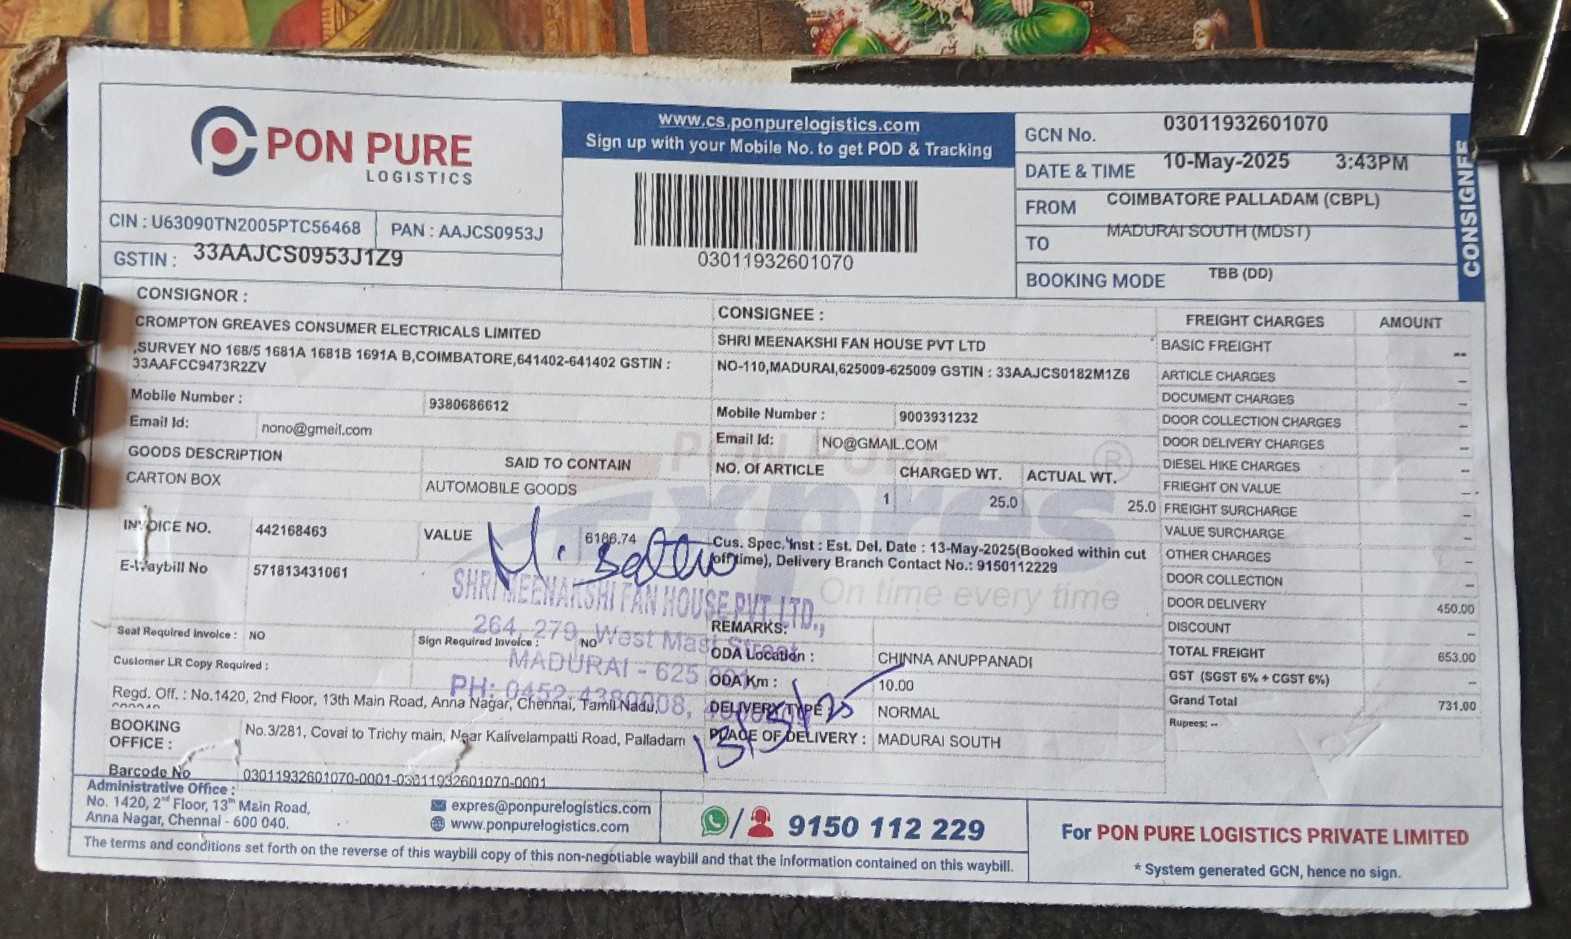 PON PURE
LOGISTICS
CIN : U63090TN2005PTC56468 PAN : AAJCS0953J
GSTIN : 33AAJCS0953J1Z9
www.cs.ponpurelogistics.com
Sign up with your Mobile No. to get POD & Tracking
03011932601070
GCN No. 03011932601070
DATE & TIME 10-May-2025 3:43PM
FROM COIMBATORE PALLADAM (CBPL)
TO MADURAI SOUTH (MDST)
BOOKING MODE TBB (DD)
CONSIGNEE
CONSIGNOR :
CROMPTON GREAVES CONSUMER ELECTRICALS LIMITED
,SURVEY NO 168/5 1681A 1681B 1691A B,COIMBATORE,641402-641402 GSTIN :
33AAFCC9473R2ZV
Mobile Number : 9380686612
Email Id: nono@gmeil.com
CONSIGNEE :
SHRI MEENAKSHI FAN HOUSE PVT LTD
NO-110,MADURAI,625009-625009 GSTIN : 33AAJCS0182M1Z6
Mobile Number : 9003931232
Email Id: NO@GMAIL.COM
GOODS DESCRIPTION SAID TO CONTAIN NO. OF ARTICLE CHARGED WT. ACTUAL WT.
CARTON BOX AUTOMOBILE GOODS 1 25.0 25.0
INVOICE NO. 442168463 VALUE 6186.74
E-Waybill No 571813431061
Cus. Spec. Inst : Est. Del. Date : 13-May-2025(Booked within cut
off time), Delivery Branch Contact No.: 9150112229
PON PURE
Expres ®
On time every time
SHRI MEENAKSHI FAN HOUSE PVT. LTD.,
264, 279, West Masi Street
MADURAI - 625 001
PH: 0452-4380008,
Seal Required Invoice : NO Sign Required Invoice : NO
Customer LR Copy Required :
REMARKS:
ODA Location : CHINNA ANUPPANADI
ODA Km : 10.00
DELIVERY TYPE : NORMAL
PLACE OF DELIVERY : MADURAI SOUTH
13/5/25
Regd. Off. : No.1420, 2nd Floor, 13th Main Road, Anna Nagar, Chennai, Tamil Nadu,
BOOKING OFFICE : No.3/281, Covai to Trichy main, Near Kalivelampatti Road, Palladam
Barcode No 03011932601070-0001-03011932601070-0001
FREIGHT CHARGES AMOUNT
BASIC FREIGHT --
ARTICLE CHARGES --
DOCUMENT CHARGES --
DOOR COLLECTION CHARGES --
DOOR DELIVERY CHARGES --
DIESEL HIKE CHARGES --
FRIEGHT ON VALUE --
FREIGHT SURCHARGE --
VALUE SURCHARGE --
OTHER CHARGES --
DOOR COLLECTION --
DOOR DELIVERY 450.00
DISCOUNT --
TOTAL FREIGHT 653.00
GST (SGST 6% + CGST 6%) --
Grand Total 731.00
Rupees: --
Administrative Office :
No. 1420, 2nd Floor, 13th Main Road,
Anna Nagar, Chennai - 600 040.
expres@ponpurelogistics.com
www.ponpurelogistics.com
9150 112 229
For PON PURE LOGISTICS PRIVATE LIMITED
* System generated GCN, hence no sign.
The terms and conditions set forth on the reverse of this waybill copy of this non-negotiable waybill and that the information contained on this waybill.